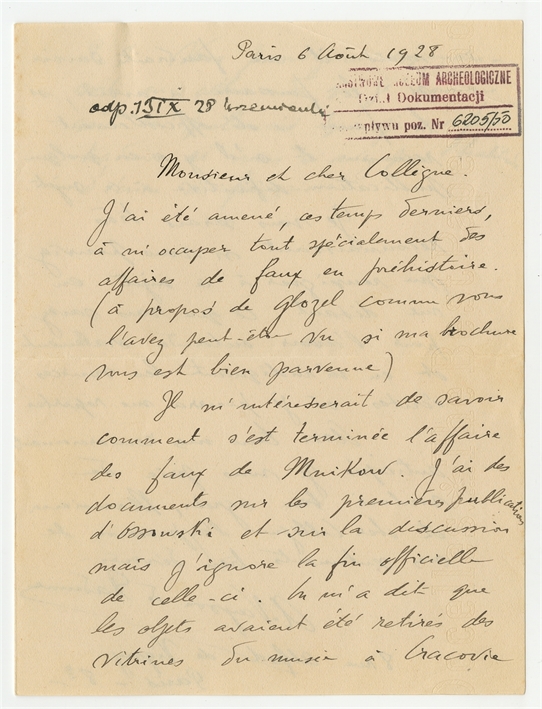 Paris 6 Août 1928
MUZEUM ARCHEOLOGICZNE
Dział Dokumentacji
wpływu poz. Nr 6205/50
odp. 13 IX 28
Monsieur et cher Collègue.
J'ai été amené, ces temps derniers,
à m'occuper tout spécialement des
affaires de faux en préhistoire.
(à propos de Glozel comme vous
l'avez peut-être vu si ma brochure
vous est bien parvenue)
Il m'intéresserait de savoir
comment s'est terminée l'affaire
des faux de Mnikow. J'ai des
documents sur les premières publications
d'Ossowski et sur la discussion
mais j'ignore la fin officielle
de celle-ci. On m'a dit que
les objets avaient été retirés des
vitrines du musée à Cracovie